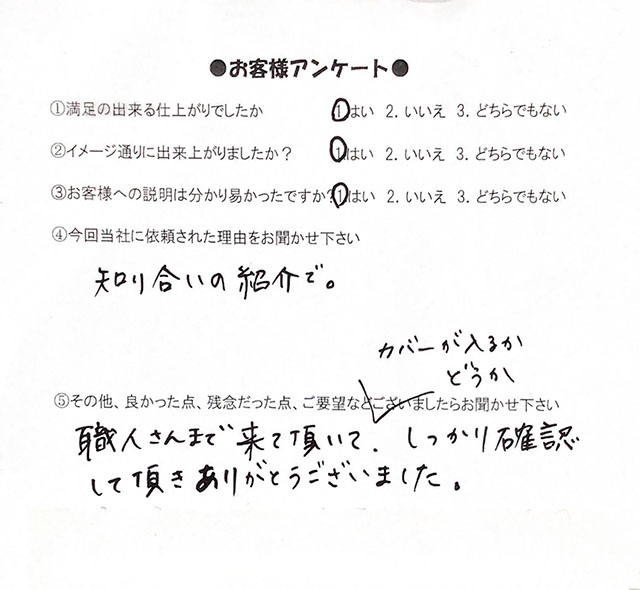 ●お客様アンケート●
①満足の出来る仕上がりでしたか 1.はい 2.いいえ 3.どちらでもない
②イメージ通りに出来上がりましたか？ 1.はい 2.いいえ 3.どちらでもない
③お客様への説明は分かり易かったですか？ 1.はい 2.いいえ 3.どちらでもない
④今回当社に依頼された理由をお聞かせ下さい
知り合いの紹介で。
カバーが入るか
どうか
⑤その他、良かった点、残念だった点、ご要望などございましたらお聞かせ下さい
職人さんまで来て頂いて、しっかり確認
して頂きありがとうございました。